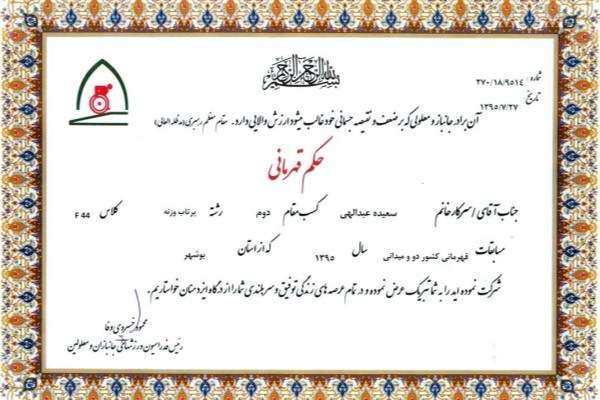 بسم الله الرحمن الرحیم
شماره: ۳۷۰/۱۸/۹۵۱۴
تاریخ: ۱۳۹۵/۷/۲۷
آن برادر جانباز و معلولی که بر ضعف و نقیصه جسمانی خود غالب میشود ارزش والایی دارد. مقام معظم رهبری (مدظله العالی)
حکم قهرمانی
جناب آقای / سرکار خانم سعیده عبدالهی کسب مقام دوم رشته پرتاب وزنه کلاس F 44
مسابقات قهرمانی کشور دو و میدانی سال ۱۳۹۵ که از استان بوشهر
شرکت نموده اید را به شما تبریک عرض نموده و در تمام عرصه های زندگی توفیق و سربلندی شما را از درگاه ایزد منان خواستاریم.
محمود خسروی وفا
رئیس فدراسیون ورزشهای جانبازان و معلولین